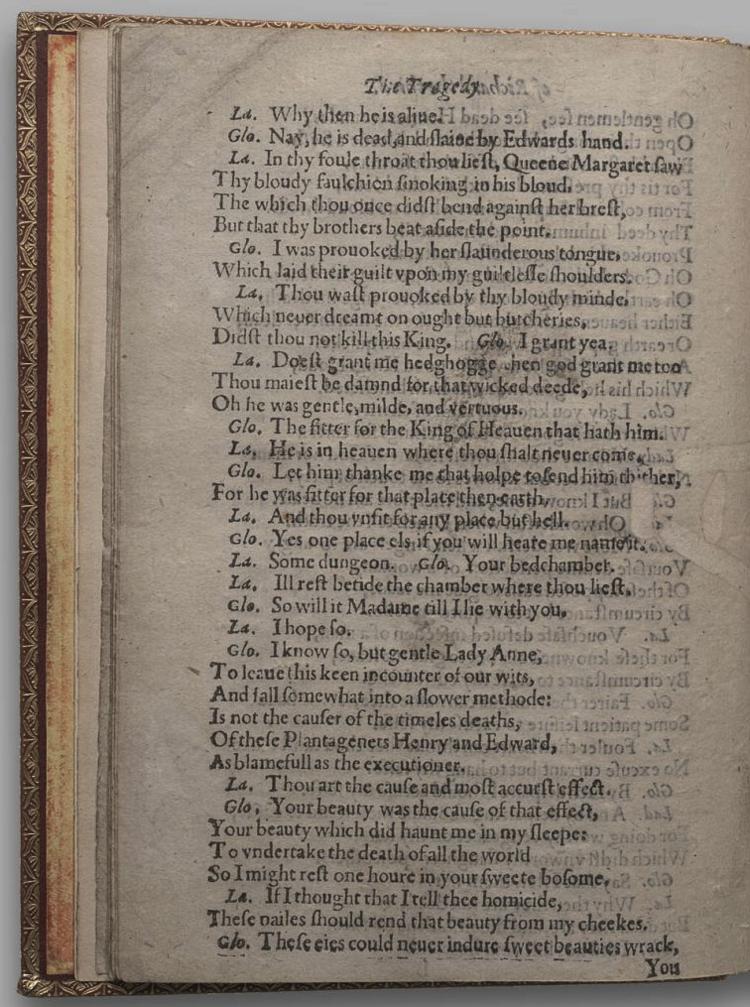 The Tragedy
La. Why then he is aliue.
Glo. Nay, he is dead, and slaine by Edwards hand.
La. In thy foule throat thou liest, Queene Margaret saw
Thy bloudy faulchion smoking in his bloud,
The which thou once didst bend against her brest,
But that thy brothers beat aside the point.
Glo. I was prouoked by her slaunderous tongue,
Which laid their guilt vpon my guiltlesse shoulders.
La. Thou wast prouoked by thy bloudy minde,
Which neuer dreamt on ought but butcheries,
Didst thou not kill this King. Glo. I grant yea.
La. Doest grant me hedghogge then god grant me too
Thou maiest be damnd for that wicked deede,
Oh he was gentle, milde, and vertuous.
Glo. The fitter for the King of Heauen that hath him.
La. He is in heauen where thou shalt neuer come.
Glo. Let him thanke me that holpe to send him thither,
For he was fitter for that place then earth.
La. And thou vnfit for any place but hell.
Glo. Yes one place els if you will heare me name it.
La. Some dungeon. Glo. Your bedchamber.
La. Ill rest betide the chamber where thou liest.
Glo. So will it Madame till I lie with you.
La. I hope so.
Glo. I know so, but gentle Lady Anne,
To leaue this keen incounter of our wits,
And fall somewhat into a slower methode:
Is not the causer of the timeles deaths,
Of these Plantagenets Henry and Edward,
As blamefull as the executioner.
La. Thou art the cause and most accurst effect.
Glo. Your beauty was the cause of that effect,
Your beauty which did haunt me in my sleepe:
To vndertake the death of all the world
So I might rest one houre in your sweete bosome.
La. If I thought that I tell thee homicide,
These nailes should rend that beauty from my cheekes.
Glo. These eies could neuer indure sweet beauties wrack,
You